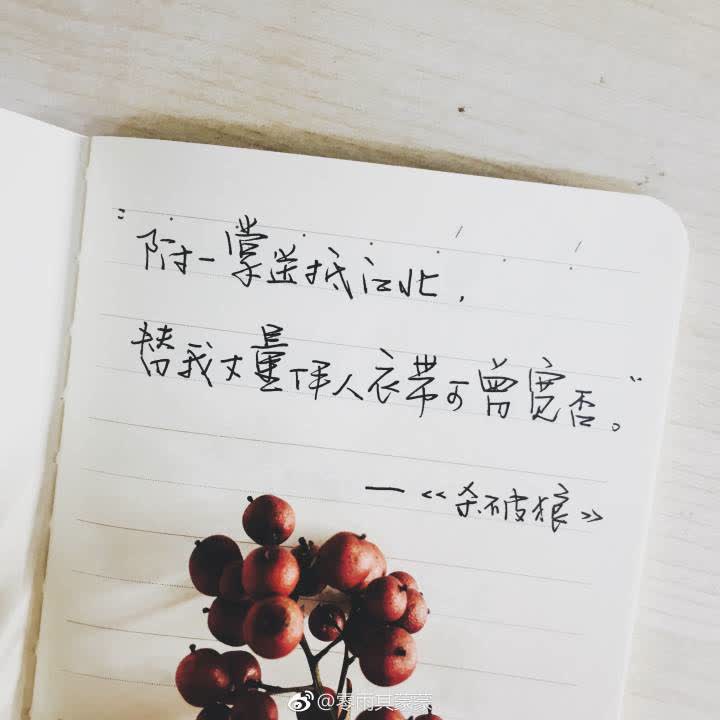 "附一掌送抵江北，
替我丈量伊人衣带可曾宽否。"
—《杀破狼》
@零雨其蒙蒙